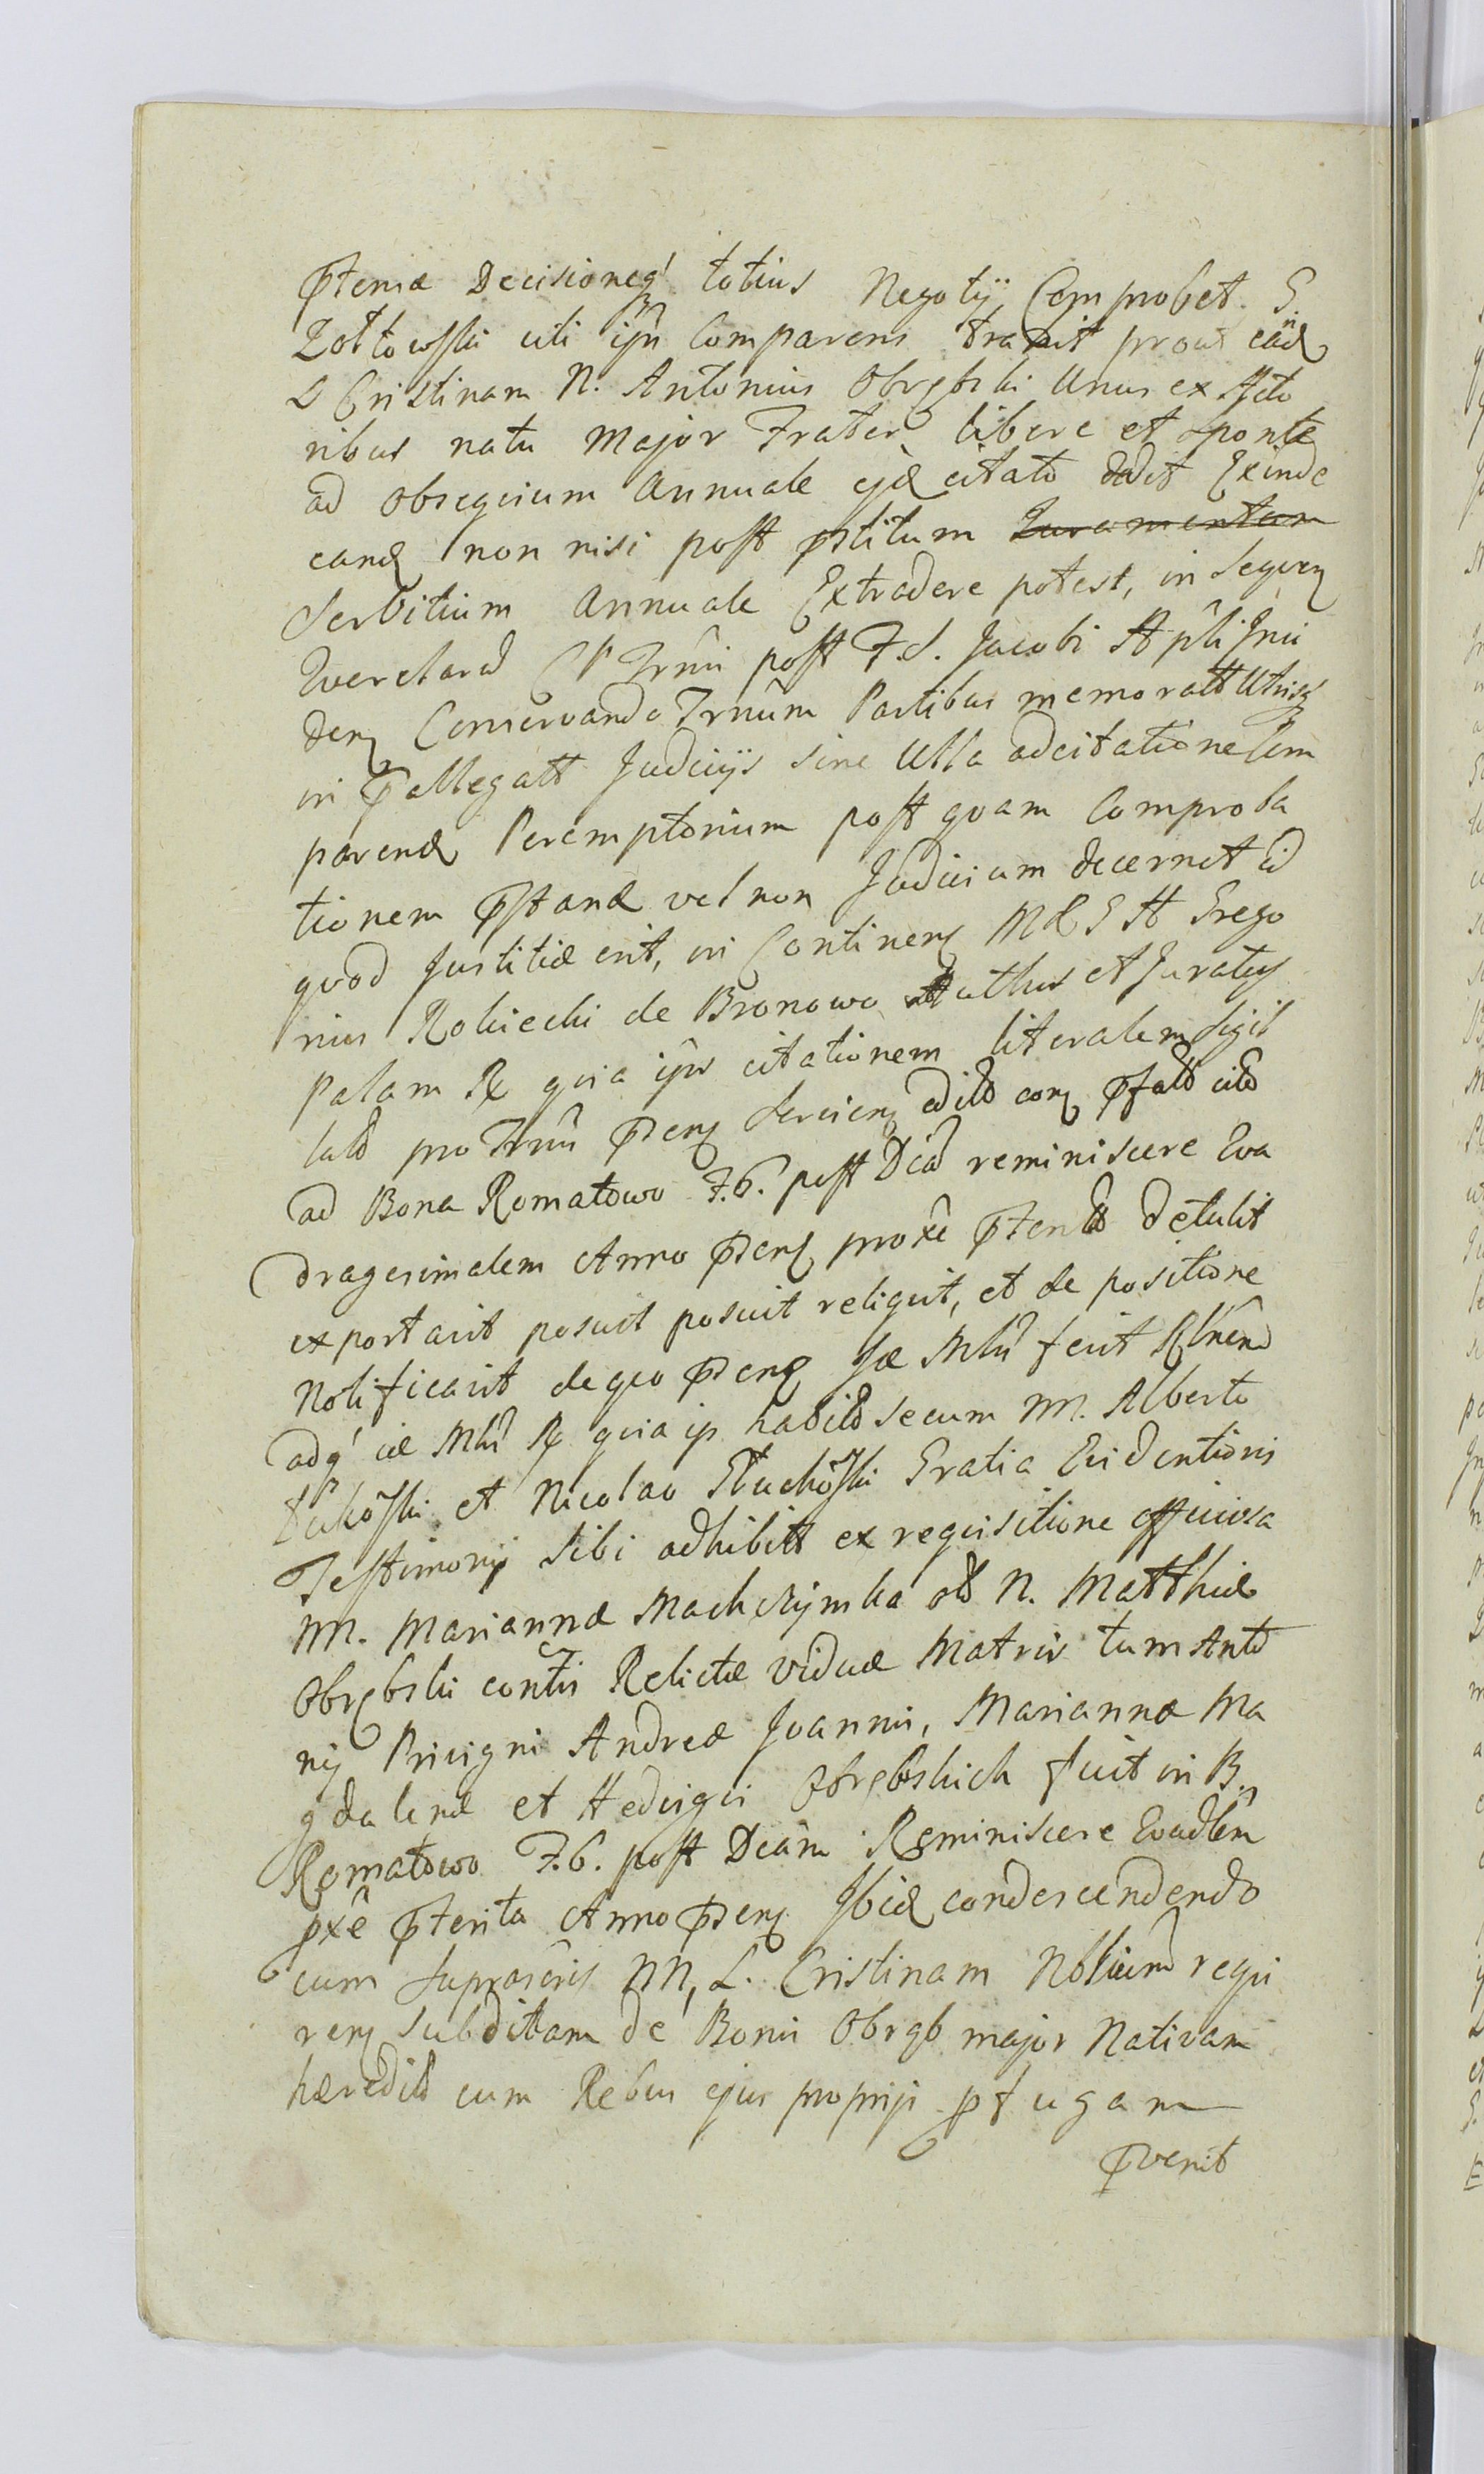 Ptensæ Decisioneq' totius Negotÿ Comprobet. G.
Żółtowski uti ijn Comparens tradit prout eand
L Cristinam N. Antonius Obrębski Unus ex Acto
ribus natu Major Frater libere et sponte
ad obsequium Annuale ejd citato dedit Exinde
eand non nisi post pstitum Juramentum
Servitium Annuale Extradere potest, in Sequen
Querelard Trmi post F.S. Jacobi Apli
den Conservando Trnum Partibus memoratt Utrisq
in Pallegatt Judiciÿs sine Ulla adcitatione Com
parend Peremptorium post quam Comproba
tionem pstand vel non Judicium decernet id
quod Justitiæ erit, in Continen M R G H Grego
rius Robiecki de Bronowo Authus et Juratus
Palam R quia ijn citationem literalem Sigil
latd pro Trnu Psen Servien edild con Pfatd citd
ad Bona Romatowo F.6. post Dicd reminiscere Qua
dragesimalem Anno Psen proxe Pteritd detulit
exportavit posuit posuit reliquit, et de positione
Notificavit de quo Psen Jæ Mlri fecit Rlnend
adq' ia Mlri R quia ijn habild secum NN. Alberto
Dukoski et Nicolao Głuchoski Gratia Evidentioris
Testimonÿ sibi adhibitt ex requisitione officiosa
NN. Mariannæ Machczynska old N. Matthiæ
Obrębski conthis Relictæ viduæ Matris tum Anto
nÿ Privigni Andreæ Joannis, Mariannæ Ma
gdalenæ et Hedvigis Obrębskich fuit in B.
Romatowo F.6. post Dicam Reminiscere Quadlem
pxe Pterita Anno Psen Ibid condescendendo
cum Suprascris NN, L. Cristinam Nobiumd requi
ren Subditam de Bonis Obręb major Nativam
hæreditd cum Rebus ejus proprijs pfugam
Pvenit